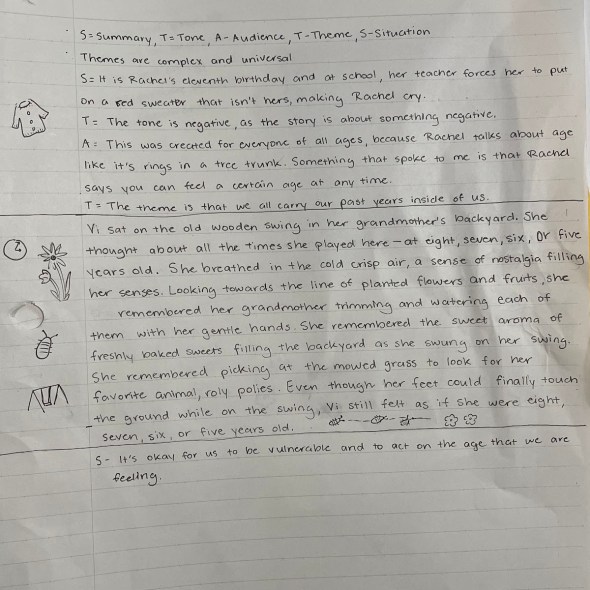 S=Summary, T=Tone, A-Audience, T-Theme, S-Situation
Themes are complex and universal
S= It is Rachel's eleventh birthday and at school, her teacher forces her to put
on a red sweater that isn't hers, making Rachel cry.
T= The tone is negative, as the story is about something negative.
A= This was created for everyone of all ages, because Rachel talks about age
like it's rings in a tree trunk. Something that spoke to me is that Rachel
says you can feel a certain age at any time.
T= The theme is that we all carry our past years inside of us.
Vi sat on the old wooden swing in her grandmother's backyard. She
2 thought about all the times she played here - at eight, seven, six, or five
years old. She breathed in the cold crisp air, a sense of nostalgia filling
her senses. Looking towards the line of planted flowers and fruits, she
remembered her grandmother trimming and watering each of
them with her gentle hands. She remembered the sweet aroma of
freshly baked sweets filling the backyard as she swung on her swing.
She remembered picking at the mowed grass to look for her
favorite animal, roly polies. Even though her feet could finally touch
the ground while on the swing, Vi still felt as if she were eight,
seven, six, or five years old.
S- It's okay for us to be vulnerable and to act on the age that we are
feeling.